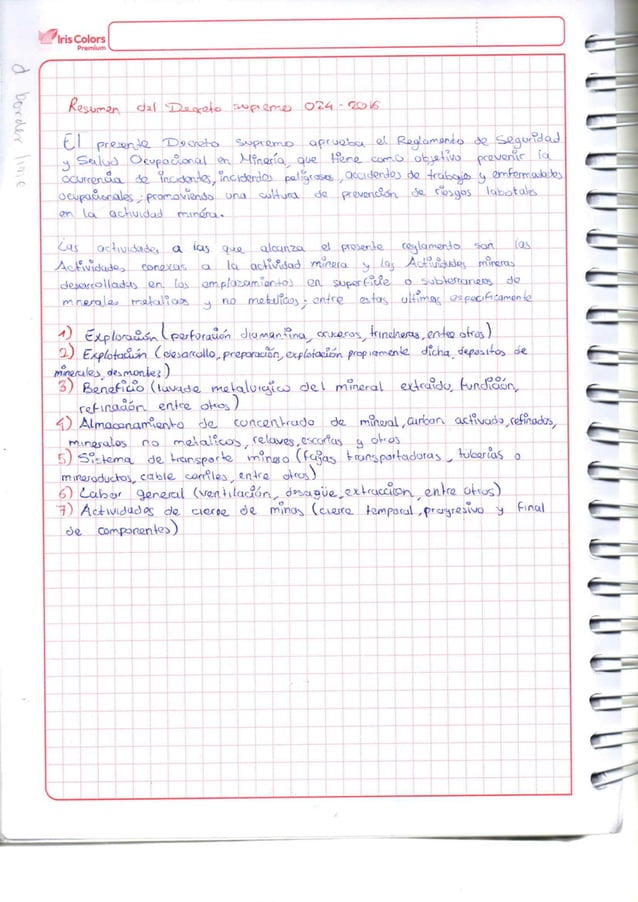 Iris Colors
Premium
d border line
Resumen del Decreto supremo 024-2016
El presente Decreto Supremo aprueba el Reglamento de Seguridad
y Salud Ocupacional en Minería, que tiene como objetivo prevenir la
ocurrencia de Incidentes, incidentes peligrosos, accidentes de trabajo y enfermedades
ocupacionales, promoviendo una cultura de prevención de riesgos laborales
en la actividad minera.
Las actividades a las que alcanza el presente reglamento son las
Actividades conexas a la actividad minera y las Actividades mineras
desarrolladas en los emplazamientos en superficie o subterraneos de
minerales metalicos y no metalicos; entre estas ultimas especificamente
1) Exploración (perforación diamantina, cruceros, trincheras, entre otros)
2) Explotación (desarrollo, preparación, explotación propiamente dicha, depositos de
minerales, desmontes)
3) Beneficio (lavado metalurgico del mineral extraido, fundición,
refinación entre otros)
4) Almacenamiento de concentrado de mineral, carbon activado, refinados,
minerales no metalicos, relaves, escorias y otros
5) Sistema de transporte minero (fajas transportadoras, tuberias o
mineroductos, cable carriles, entre otros)
6) Labor general (ventilación, desagüe, extracción, entre otros)
7) Actividades de cierre de minas (cierre temporal, progresivo y final
de componentes)